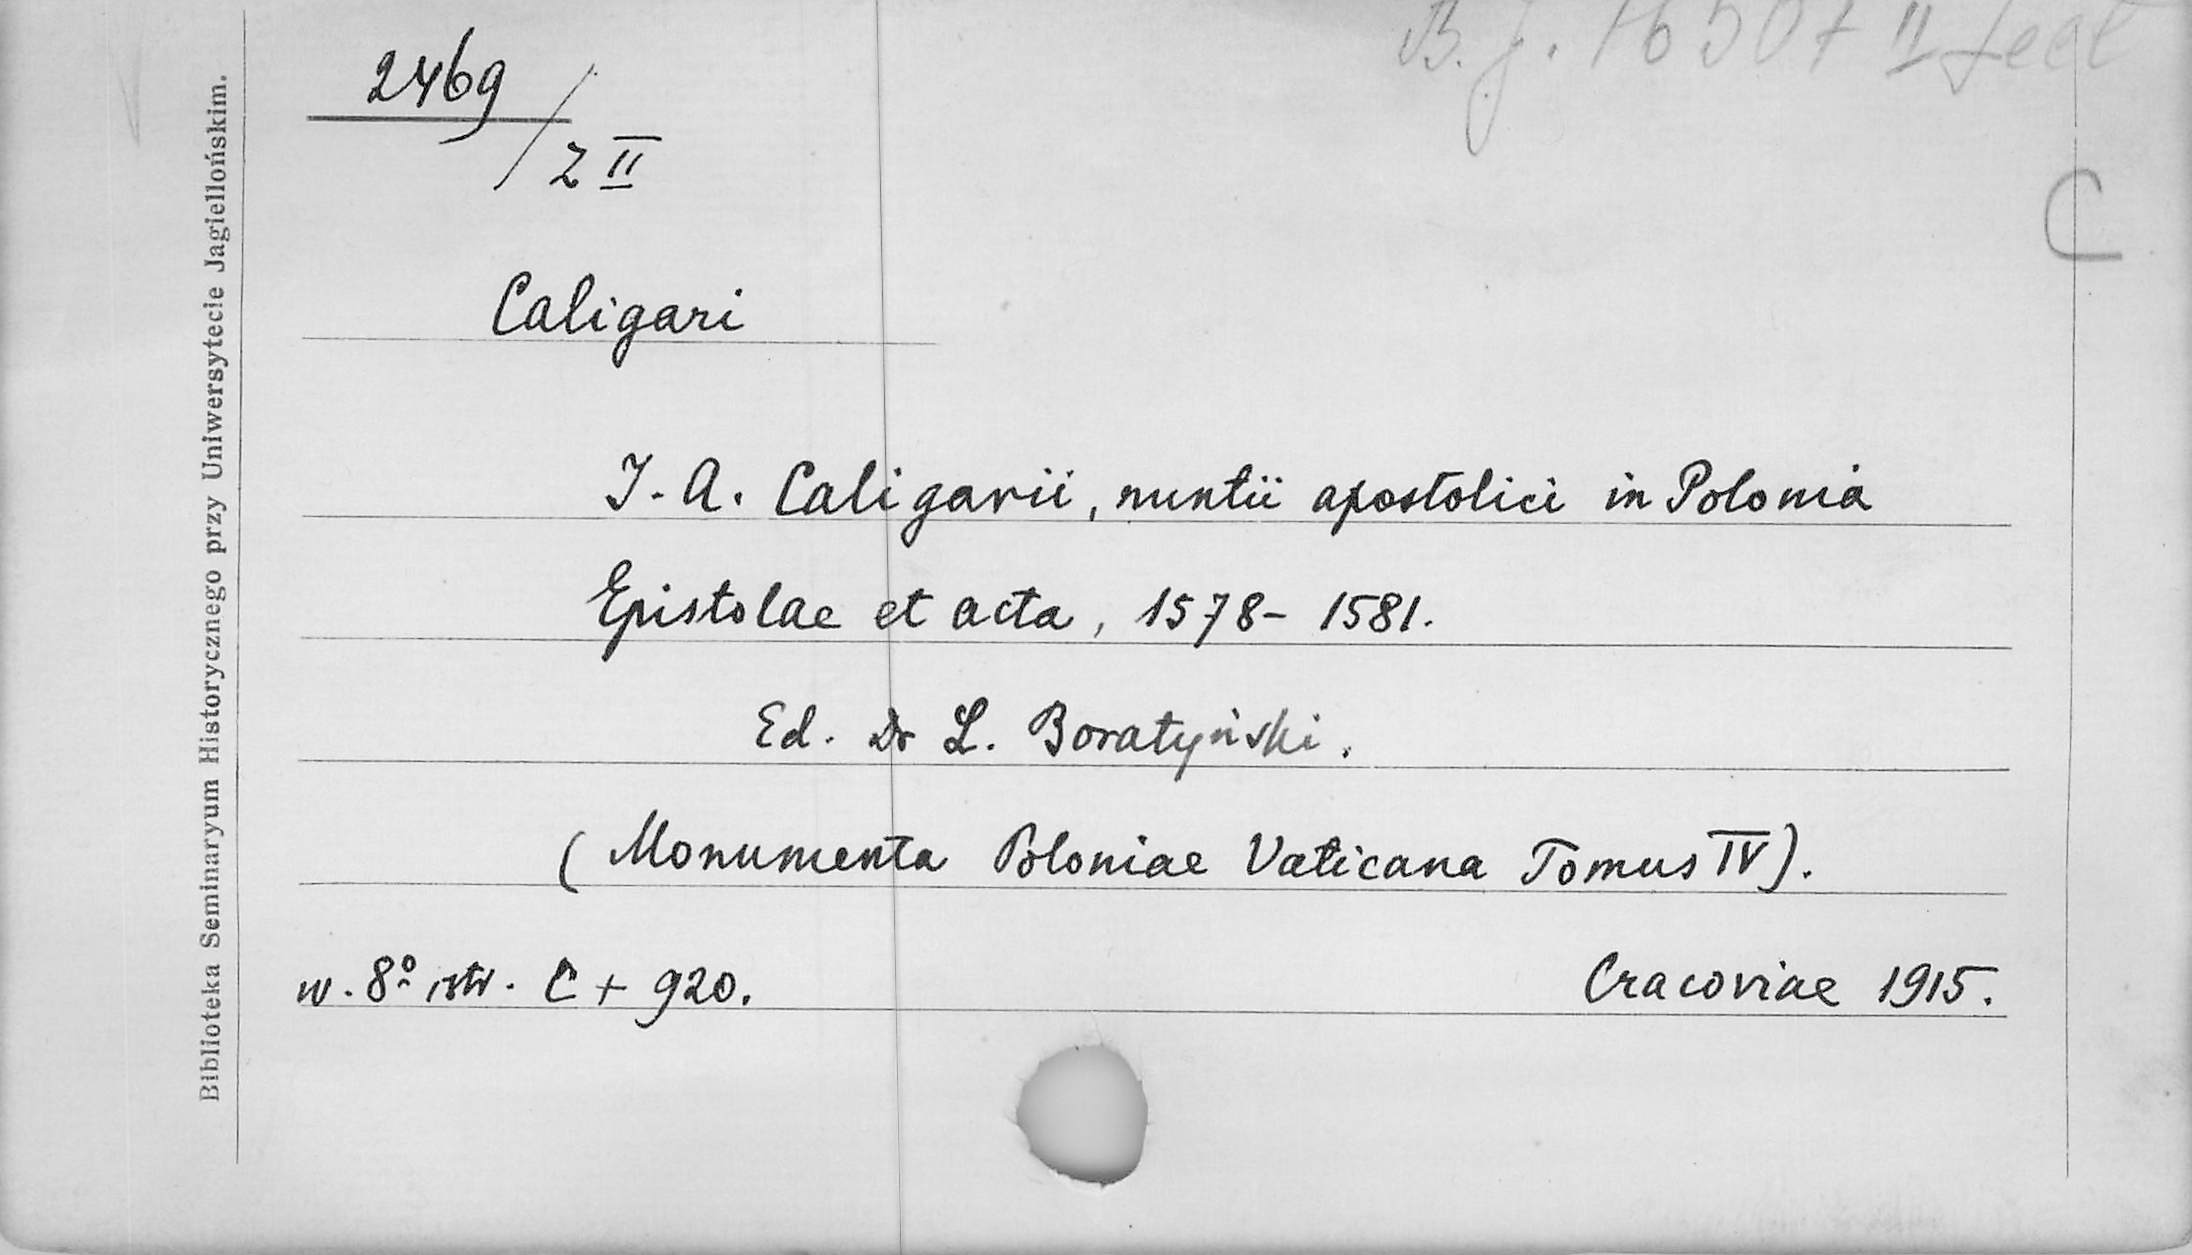 B. J. 16507 II
2469
/ Z II
C
Caligari
J. A. Caligarii, nuntii apostolici in Polonia
Epistolae et acta, 1578 - 1581.
Ed. Dr L. Boratyński.
( Monumenta Poloniae Vaticana Tomus IV).
w. 8º str. C + 920.
Cracoviae 1915.
Biblioteka Seminaryum Historycznego przy Uniwersytecie Jagiellońskim.